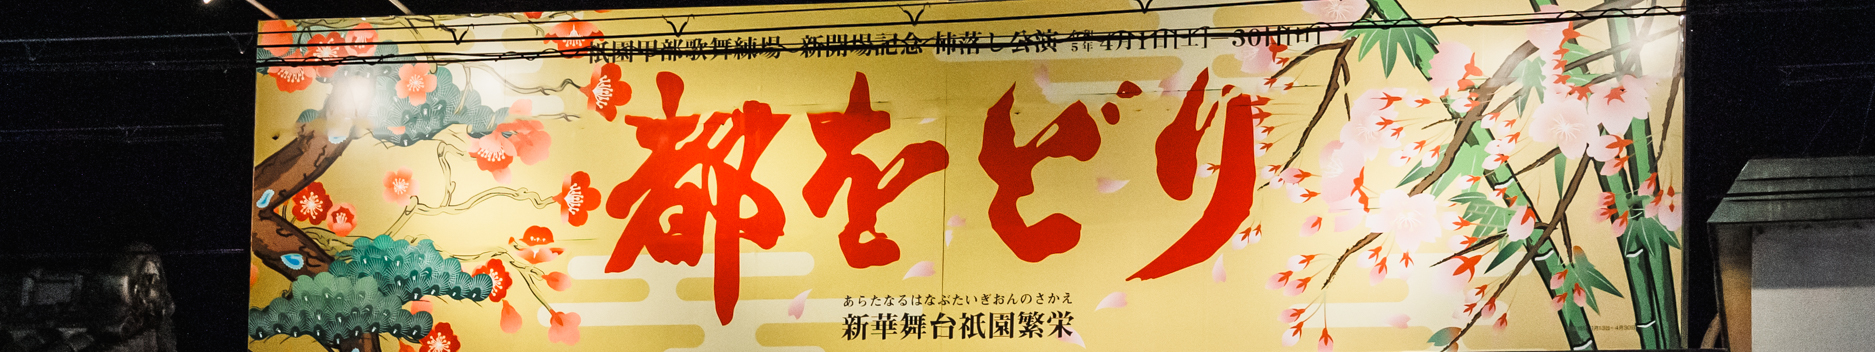 祇園甲部歌舞練場 新開場記念 杮落し公演 令和5年 4月1日[土]―30日[日]
都をどり
あらたなるはなぶたいぎおんのさかえ
新華舞台祇園繁栄